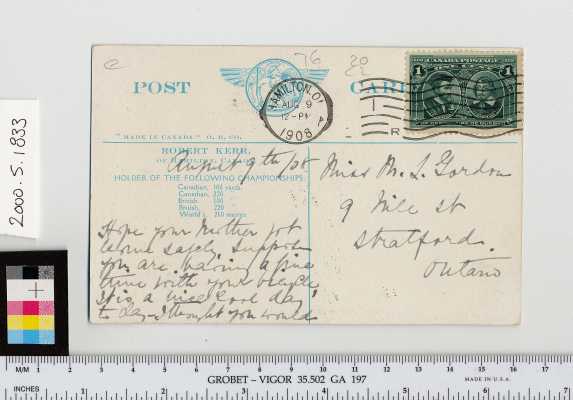 2000.S.1833
76
POST CARD
CANADA POSTAGE
1 1
HAMILTON, ON
AUG 9
12-PM
1908
R
"MADE IN CANADA"
ROBERT KERR,
OF HAMILTON, CANADA
HOLDER OF THE FOLLOWING CHAMPIONSHIPS
Canadian, 100 yards
Canadian, 220
British 100
British, 220
World's 210 metres
August 9th/08
Hope your Mother got
home safely. Suppose
you are having a fine
time with your people
It is a nice cool day
to day - I thought you would
Miss M. L. Gordon
9 Nile St
Stratford.
Ontario
M/M 1 2 3 4 5 6 7 8 9 10 11 12 13 14 15 16 17
GROBET - VIGOR 35.502 GA 197
MADE IN U.S.A.
INCHES 1 2 3 4 5 6 7